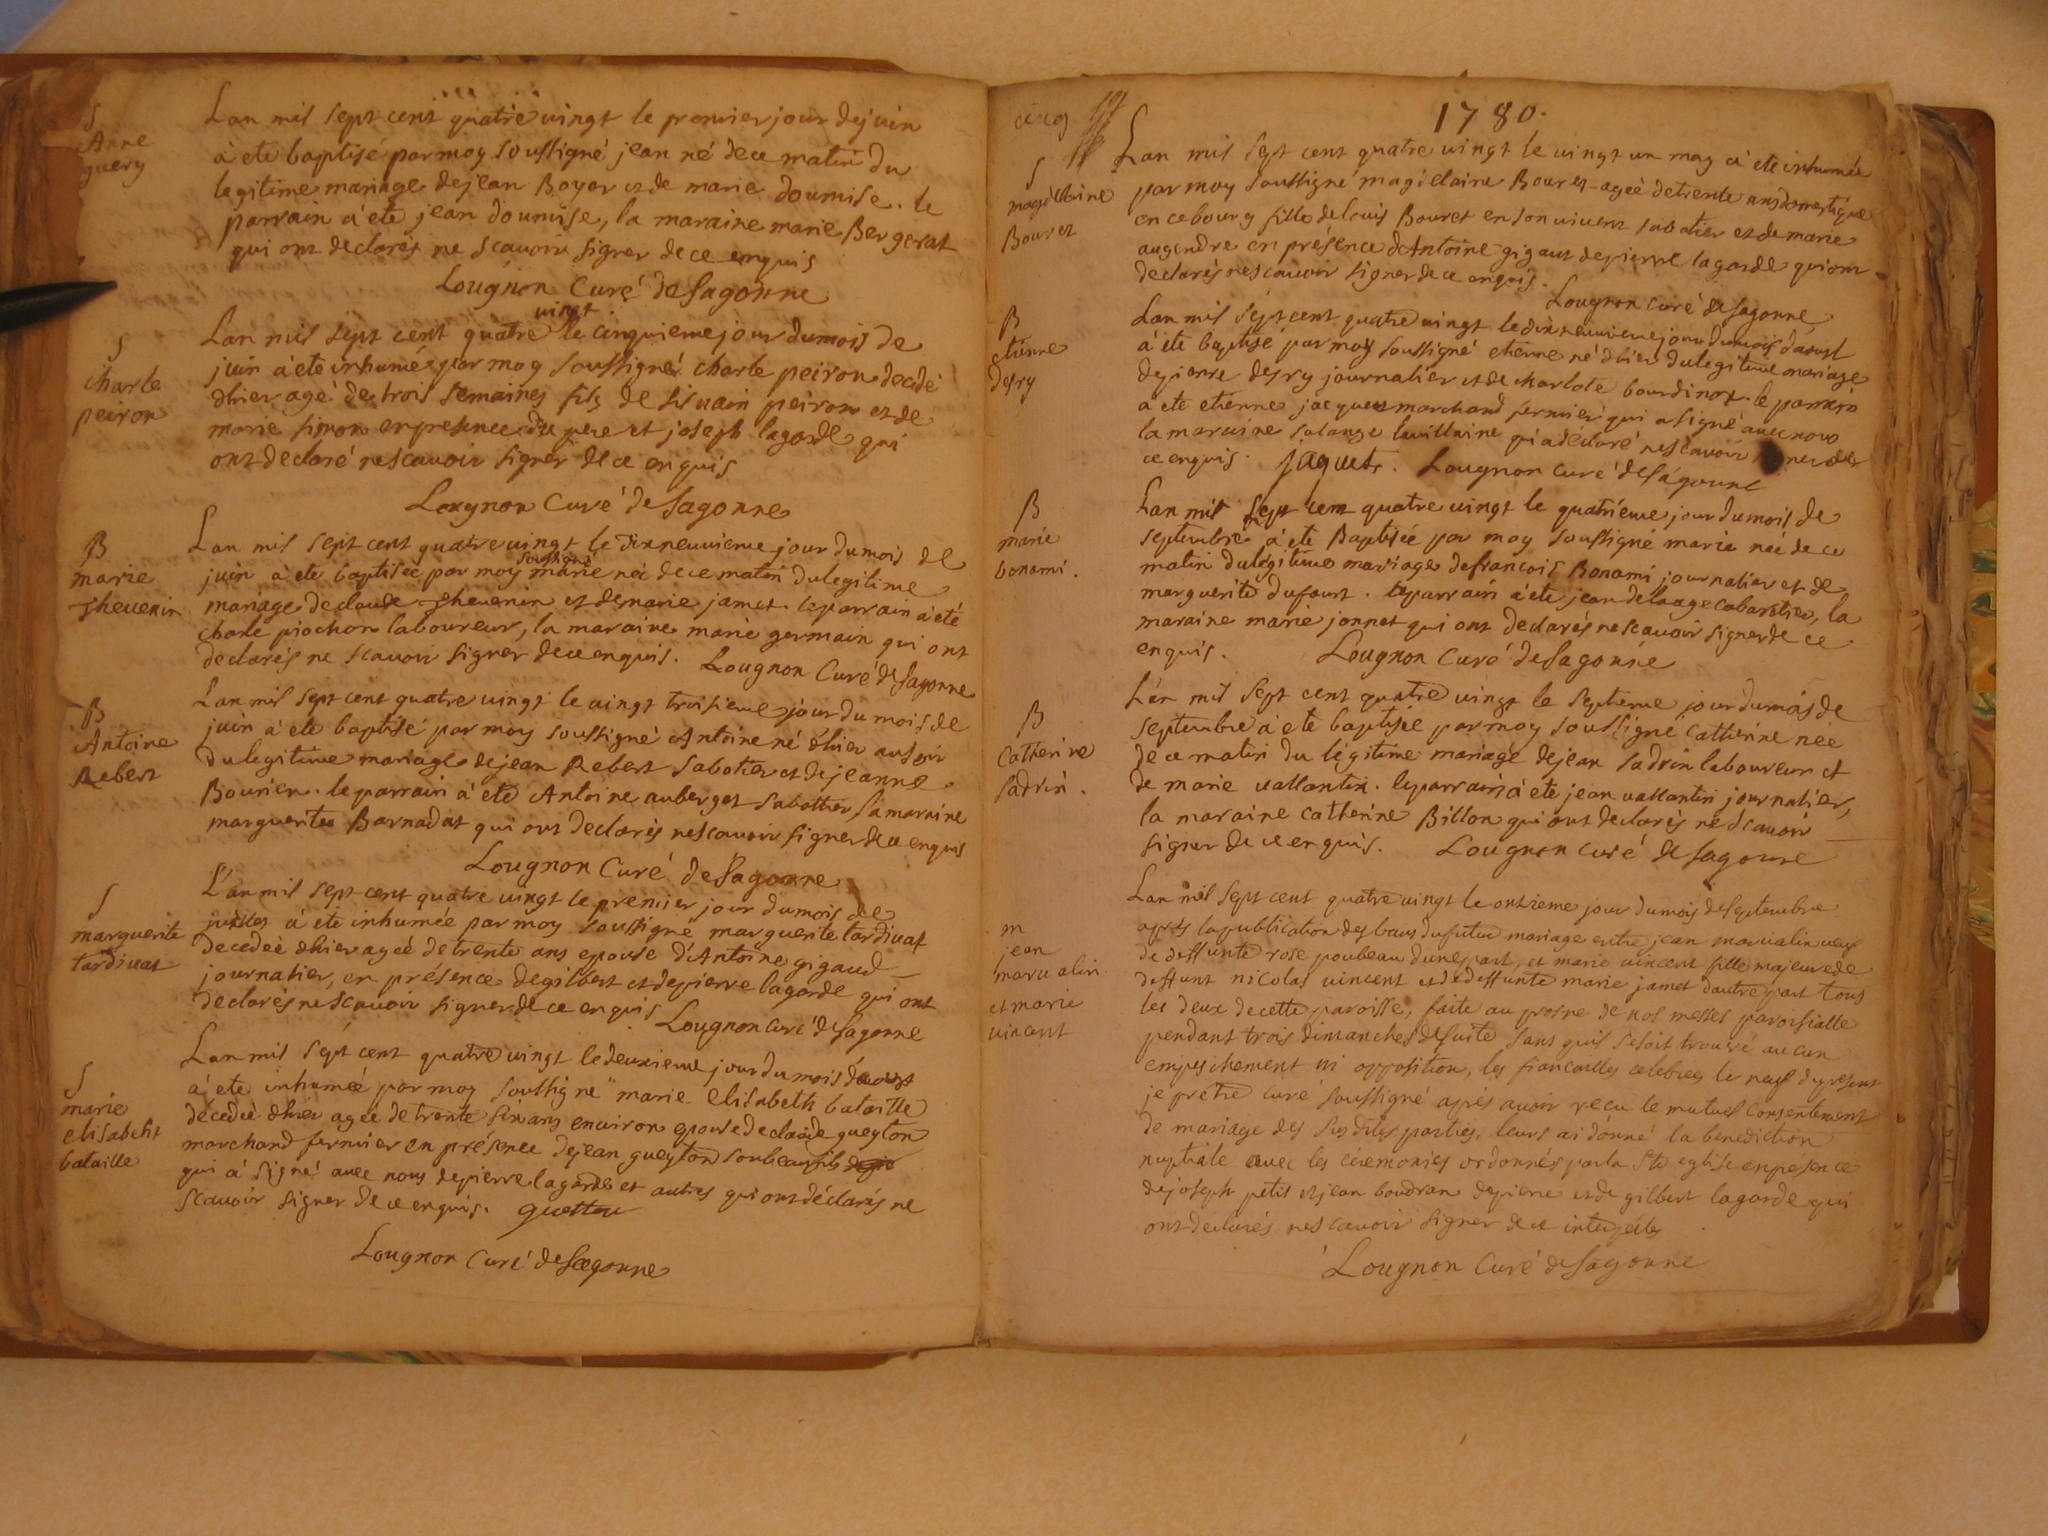 S
Anne
guery
Lan mil sept cent quatre vingt le premier jour de juin
à eté baptisé par moy soussigné jean né de ce matin du
legitime mariage de jean Boyer et de marie doumise. le
parrain à eté jean doumise, la maraine marie Bergerat
qui ont declarés ne scavoir signer de ce enquis
Lougnon Curé de Sagonne
S
charle
peiron
vingt
Lan mil sept cent quatre le cinquieme jour du mois de
juin à eté inhumé par moy soussigné charle peiron decedé
dhier agé de trois semaines fils de silvain peiron et de
marie simon en presence du pere et joseph lagorde qui
ont declaré ne scavoir signer de ce enquis
Lougnon Curé de Sagonne
B
marie
thevenin
Lan mil sept cent quatre vingt le dixneuvieme jour du mois de
soussigné
juin à eté baptisée par moy marie née de ce matin du legitime
mariage de claude thevenin et de marie jamet. le parrain à eté
charle piochon laboureur, la maraine marie germain qui ont
declarés ne scavoir signer de ce enquis. Lougnon Curé de Sagonne
B
Antoine
Rebert
Lan mil sept cent quatre vingt le vingt troisieme jour du mois de
juin à eté baptisé par moy soussigné Antoine né dhier au soir
du legitime mariage de jean Rebert sabotier et de jeanne
Bourien. le parrain à eté Antoine auberget sabottier la maraine
marguerite Barnadat qui ont declarés ne scavoir signer de ce enquis
Lougnon Curé de Sagonne
S
marguerite
tardivat
L'an mil sept cent quatre vingt le premier jour du mois de
juillet à eté inhumée par moy soussigné marguerite tardivat
decedée dhier agée de trente ans epouse d'Antoine gigaud
journalier, en présence de gilbert et de pierre lagorde qui ont
declarés ne scavoir signer de ce enquis Lougnon Curé de Sagonne
S
marie
elisabeht
bataille
Lan mil sept cent quatre vingt le deuxieme jour du mois d'aoust
à eté inhumée par moy soussigné marie Elisabeth bataille
decedée dhier agée de trente six ans environ epouse de claude gueyton
marchand fermier en présence de jean gueyton son beau fils
qui à signé avec nous de pierre lagorde et autres qui ont déclarés ne
scavoir signer de ce enquis.
Lougnon Curé de Sagonne
cinq
1780.
S
magdelaine
Bouret
Lan mil sept cent quatre vingt le vingt un may à eté inhumée
par moy soussigné magdelaine Bouret agée de trente ans domestique
en ce bourg fille de louis Bouret en son vivant sabotier et de marie
augendre en présence de Antoine gigaut de pierre lagorde qui ont
declarés ne scavoir signer de ce enquis.
Lougnon curé de Sagonne
B
etienne
desry
Lan mil sept cent quatre vingt le dixneuvieme jour du mois d'aoust
à eté baptisé par moy soussigné etienne né d'hier du legitime mariage
de pierre desry journalier et de charlote bourdinot. le parrain
à eté etienne jacquet marchand fermier qui a signé avec nous
la maraine solange lavillaine qui a déclaré ne scavoir signer de
ce enquis. jaquet. Lougnon Curé de Sagonne
B
marie
bonami.
Lan mil sept cent quatre vingt le quatrieme jour du mois de
septembre à eté Baptisée par moy soussigné marie née de ce
matin du légitime mariage de francois Bonami journalier et de
marguerite dufourt. le parrain à eté jean delaage cabaretier, la
maraine marie jonnet qui ont declarés ne scavoir signer de ce
enquis. Lougnon Curé de Sagonne
B
Catherine
Sadrin.
Lan mil sept cent quatre vingt le septieme jour du mois de
septembre à eté baptisée par moy soussigné Catherine née
de ce matin du légitime mariage de jean Sadrin laboureur et
de marie vallantin. le parrain à eté jean vallantin journalier,
la maraine Catherine Billon qui ont declarés ne scavoir
signer de ce enquis. Lougnon Curé de Sagonne
m
jean
marvalin
et marie
vincent
Lan mil sept cent quatre vingt le onzieme jour du mois de septembre
après la publication des bans du futur mariage entre jean marvalin veuf
de deffunte rose poubeau d'une part, et marie vincent fille majeure de
deffunt nicolas vincent et de deffunte marie jamet d'autre part tous
les deux de cette paroisse, faite au prosne de nos messes paroissialle
pendant trois dimanches de suite sans quil se soit trouvé aucun
empeschement ni opposition, les fiancailles celebrees le neuf du present
je prêtre curé soussigné après avoir reçu le mutuel consentement
de mariage des sus dites parties, leurs ai donné la benediction
nuptiale avec les cérémonies ordonnés par la Ste eglise en présence
de joseph petit et jean boudran de pierre et de gilbert lagorde qui
ont declarés ne scavoir signer de ce
Lougnon Curé de Sagonne